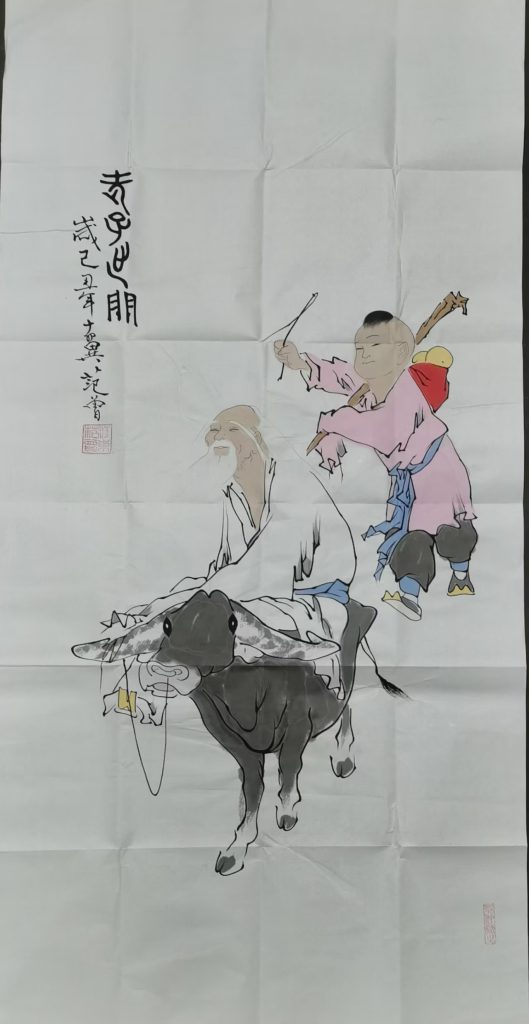 老子出門
歲己丑年十翼范曾